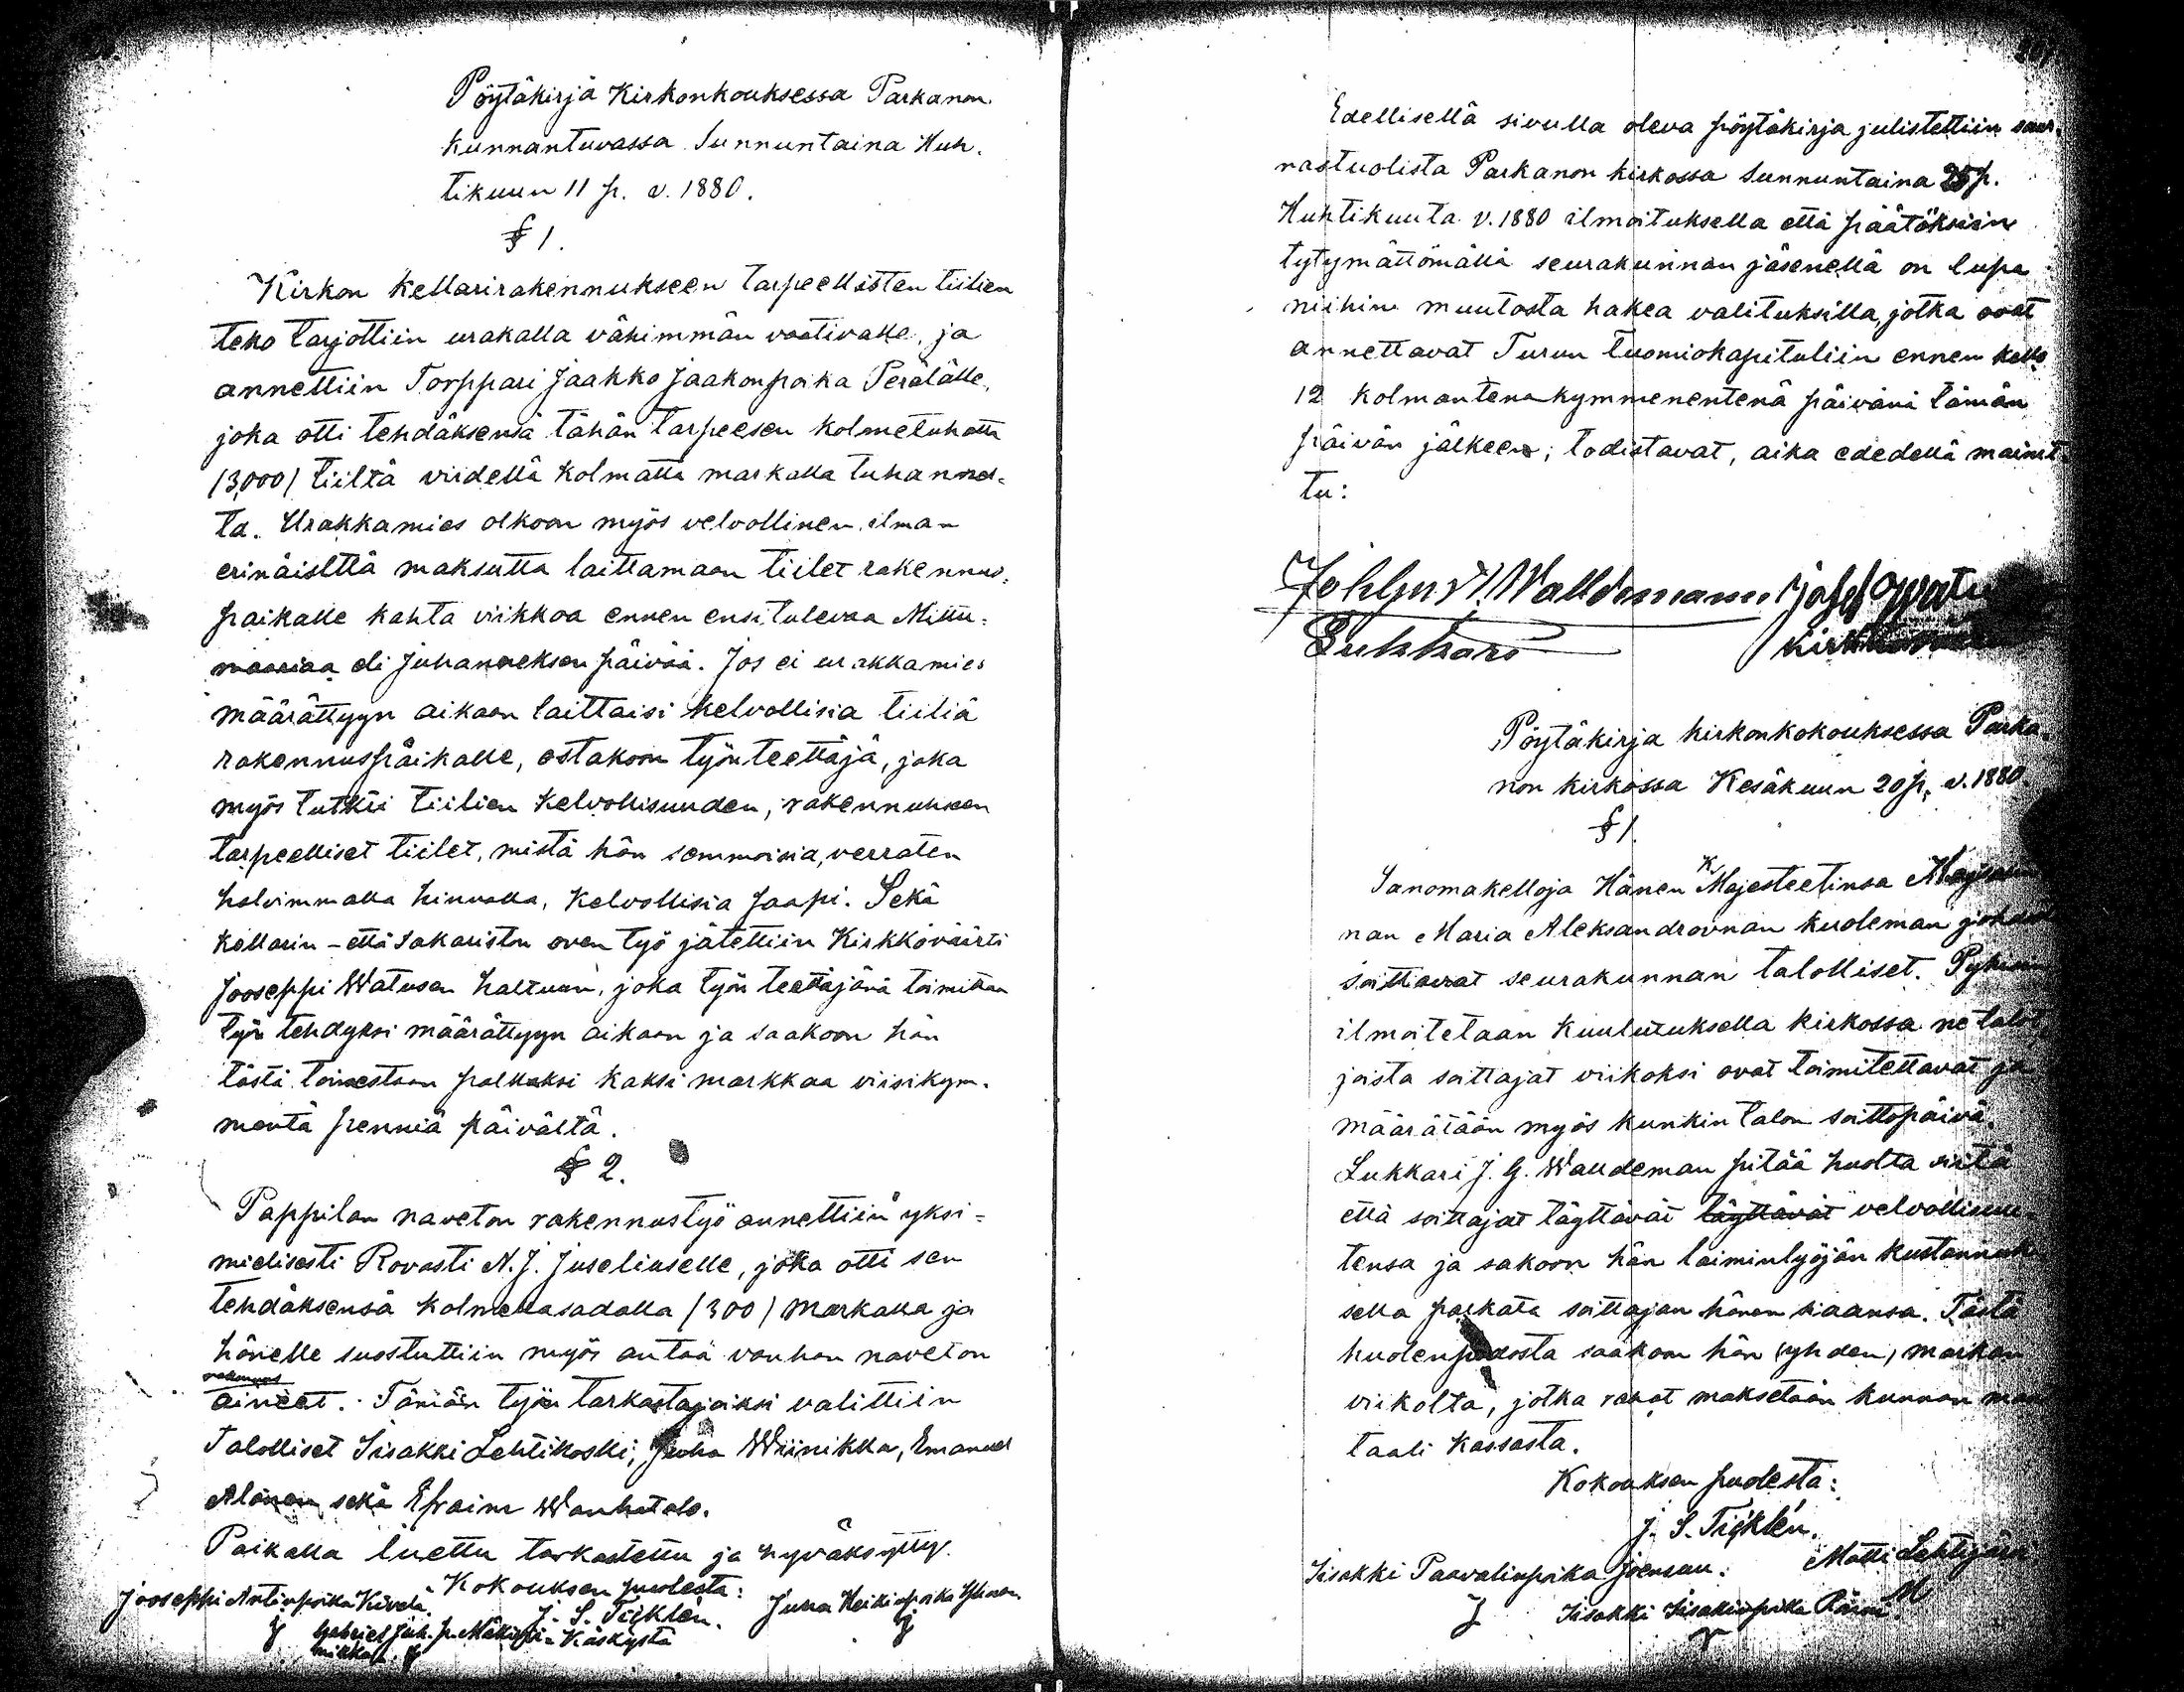 Pöytäkirja Kirkonkouksessa Parkanon
kunnantuvassa Sunnuntaina Huh-
tikuun 11 p. v. 1880.
§ 1.
Kirkon kellarirakennukseen tarpeellisten tiilien
teko tarjottiin urakalla vähimmän vaativalle, ja
annettiin Torppari Jaakko Jaakonpoika Perälälle,
joka otti tehdäksensä tähän tarpeesen kolmetuhatta
/3,000/ tiiltä viidellä kolmatta markalla tuhannel-
ta. Urakkamies olkoon myös velvollinen ilman
erinäisttä maksutta laittamaan tiilet rakennus-
paikalle kahta viikkoa ennen ensitulevaa Mittu-
maariaa eli Juhanneksen päivää. Jos ei urakkamies
määrättyyn aikaan laittaisi kelvollisia tiiliä
rakennuspaikalle, ostakoon työnteettäjä, joka
myös tutkii tiilien kelvollisuuden, rakennukseen
tarpeelliset tiilet, mistä hän semmoisia, verraten
halvimmalla hinnalla, kelvollisia saapi. Sekä
kellarin - että sakariston oven työ jätettiin Kirkkoväärti
Jooseppi Watusen haltuun, joka työn teettäjänä toimittaa
työn tehdyksi määrättyyn aikaan ja saakoon hän
tästä toimestaan palkaksi kaksi markkaa viisikym-
mentä penniä päivältä.
§ 2.
Pappilan naveton rakennustyö annettiin yksi-
mielisesti Rovasti A. J. Juseliuselle, joka otti sen
tehdäksensä kolmellasadalla /300/ markalla ja
hänelle suostuttiin myös antaa vanhan naveton
rakennus
aineet. Tämän työn tarkastajaiksi valittiin
Talolliset Iisakki Lehtikoski, Juha Wiinikka, Emanuel
Alanen sekä Efraim Wanhatalo.
Paikalla luettu tarkastettu ja hyväksytty.
Kokouksen puolesta:
Jooseppi Antinpoika Kivelä. J. S. Ticklén. Juha Heikinpoika
Gabriel Juh. p. Käskystä
Edellisellä sivulla oleva pöytäkirja julistettiin saar-
nastuolista Parkanon kirkossa Sunnuntaina 25 p.
Huhtikuuta v. 1880 ilmoituksella että päätöksiin
tytymättömällä seurakunnan jäsenellä on lupa
niihin muutosta hakea valituksilla, jotka ovat
annettavat Turun tuomiokapituliin ennen kello
12 kolmantenakymmenentenä päivänä tämän
päivän jälkeen; todistavat, aika ededellä mainit-
tu:
Johan G. Walldemann
Lukkari
Pöytäkirja kirkonkokouksessa Parka-
non kirkossa Kesäkuun 20 p. v. 1880.
§ 1.
Sanomakelloja Hänen K Majesteetinsa
nan Maria Aleksandrovnan kuoleman johdosta
soittavat seurakunnan talolliset.
ilmoitetaan kuulutuksella kirkossa ne talot,
joista soittajat viikoksi ovat toimitettavat ja
määrätään myös kunkin talon soittopäivä.
Lukkari J. G. Walldeman pitää huolta siitä
että soittajat täyttävät täyttävät velvollisuu-
tensa ja sakoon hän laiminlyöjän kustannuk-
sella palkata soittajan hänen siaansa. Tästä
huolenpidosta saakoon hän (yhden) markan
viikolta, jotka rahat maksetaan kunnan
taali kassasta.
Kokouksen puolesta:
J. S. Ticklén.
Iisakki Paavalinpoika Joensuu. Matti Lehtijärvi
J Iisakki Iisakinpoika M